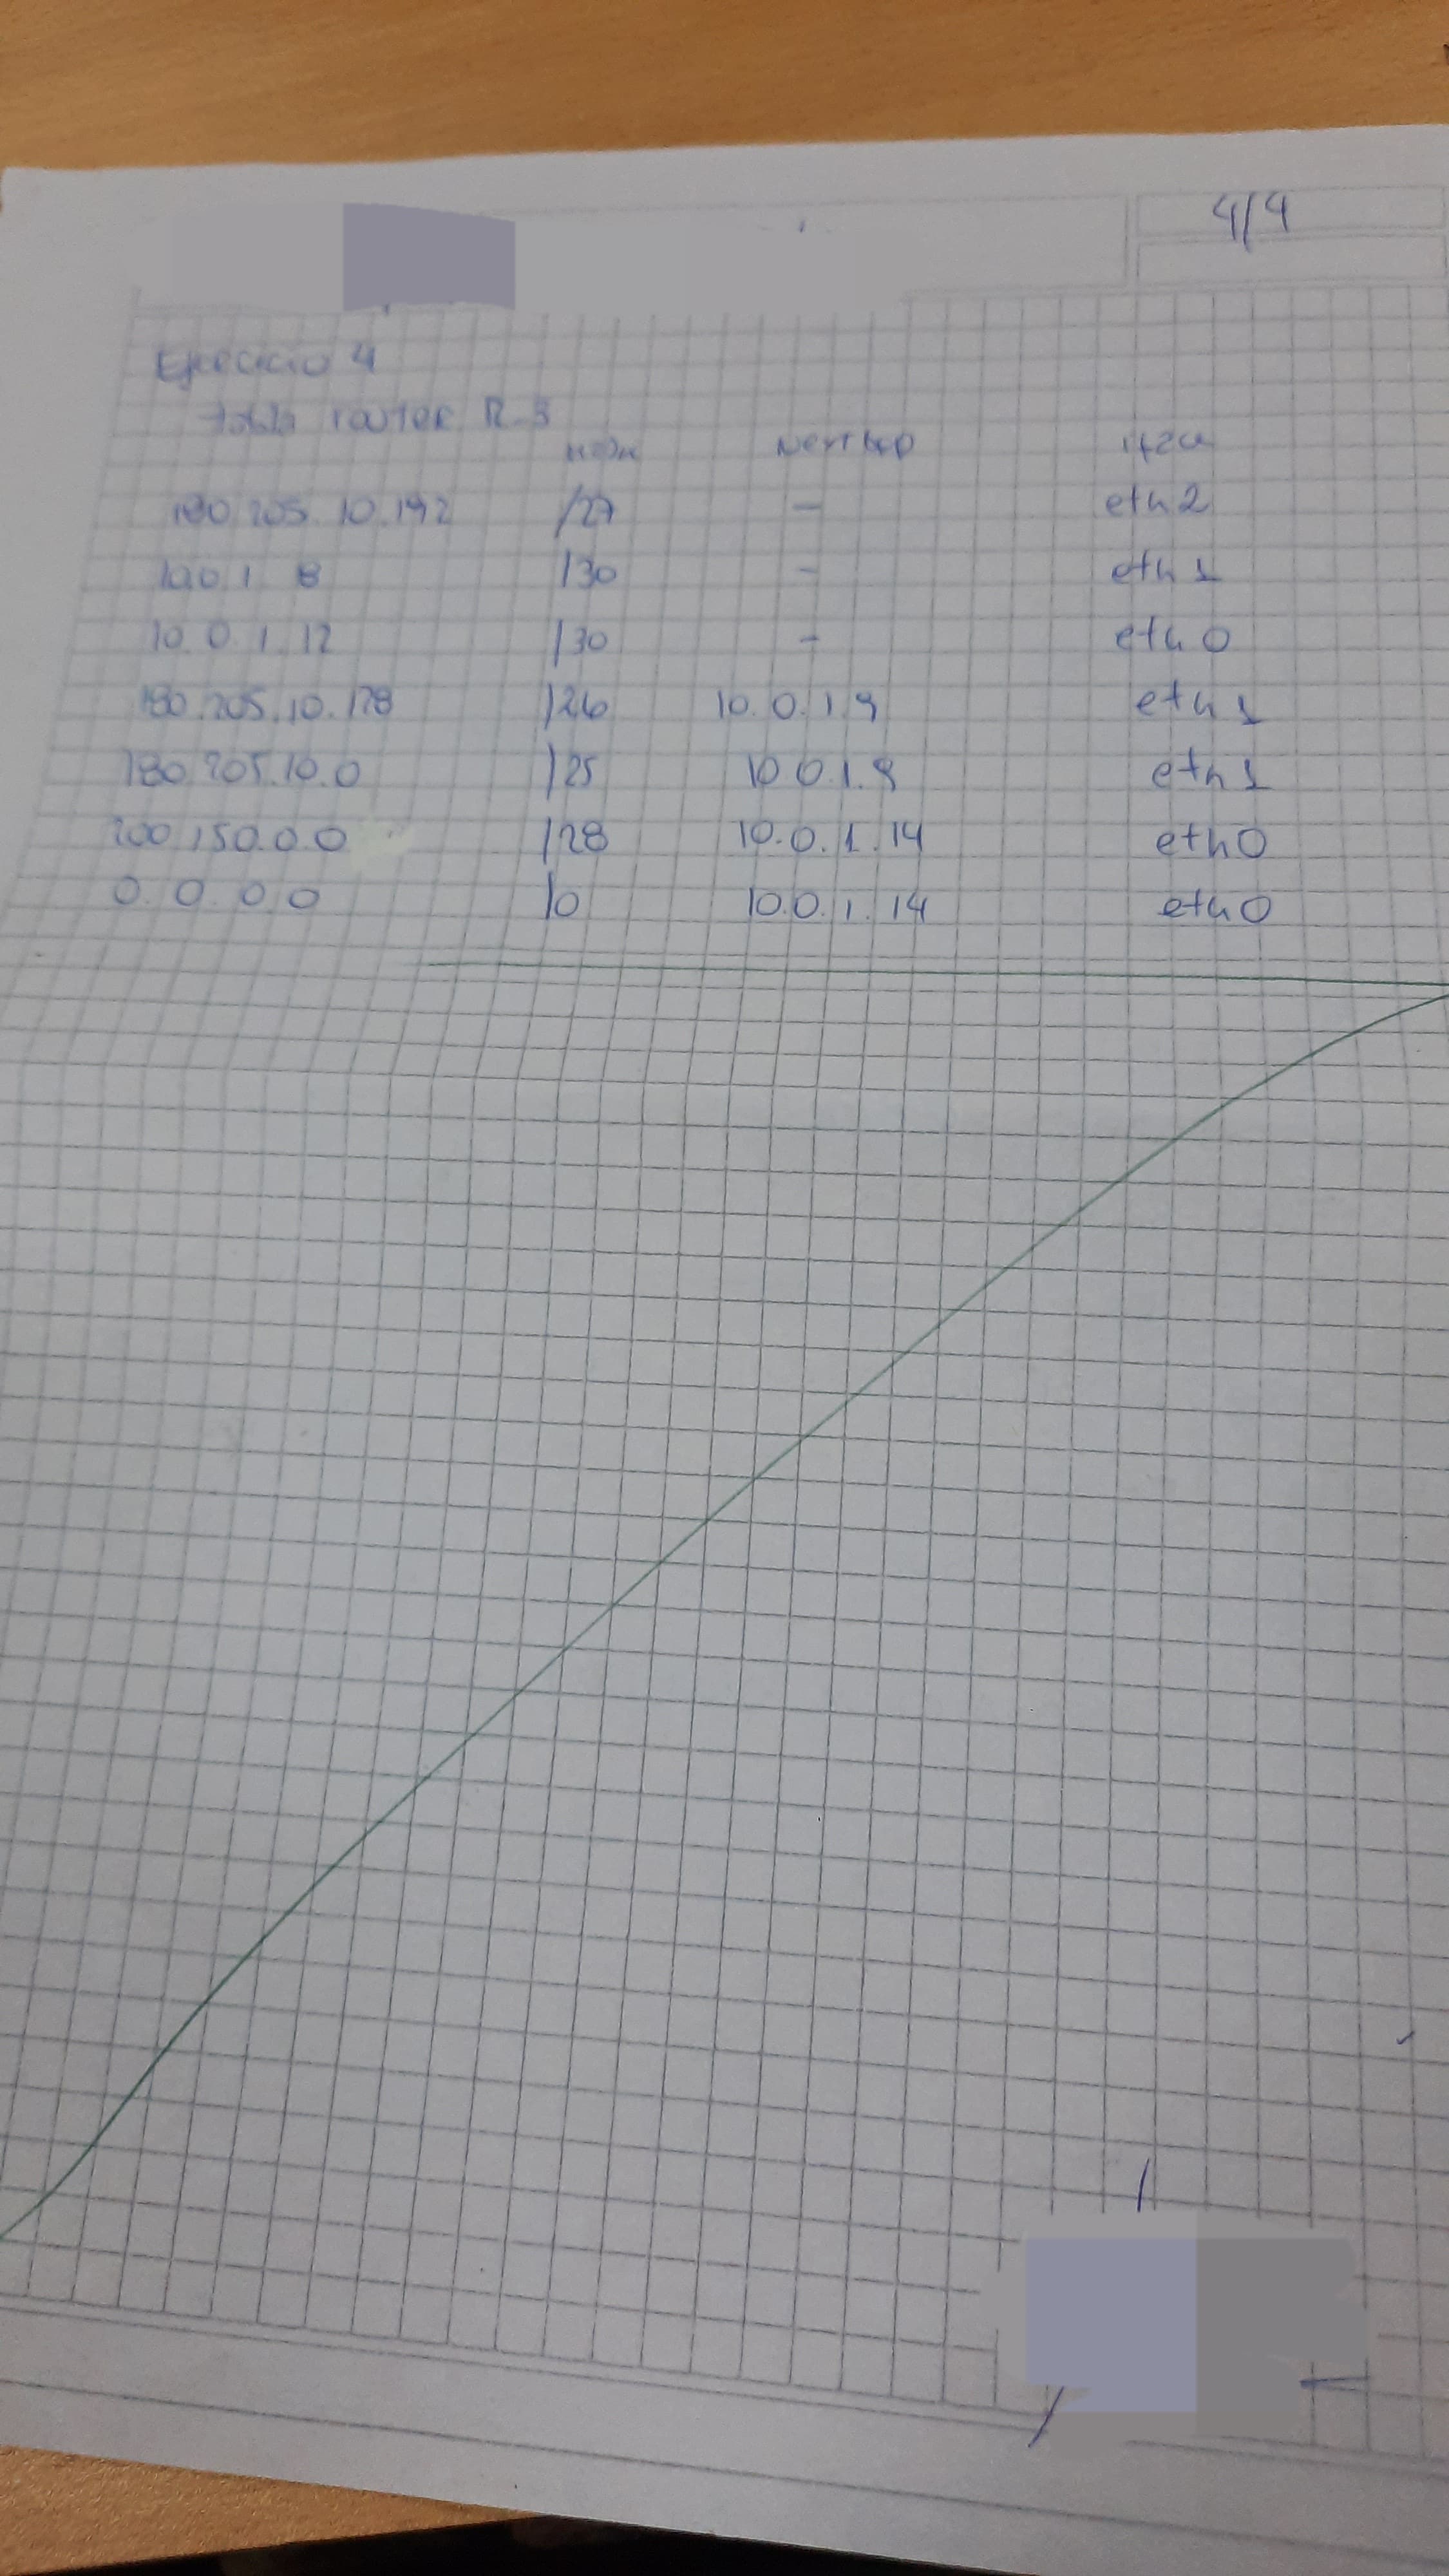 4/4
Ejercicio 4
tabla router R-3
Next hop
180.205.10.192 /27 - eth2
10.0.1.8 /30 - eth1
10.0.1.12 /30 - eth0
180.205.10.128 /26 10.0.1.9 eth1
180.205.10.0 /25 10.0.1.9 eth1
200.150.0.0 /28 10.0.1.14 eth0
0.0.0.0 /0 10.0.1.14 eth0